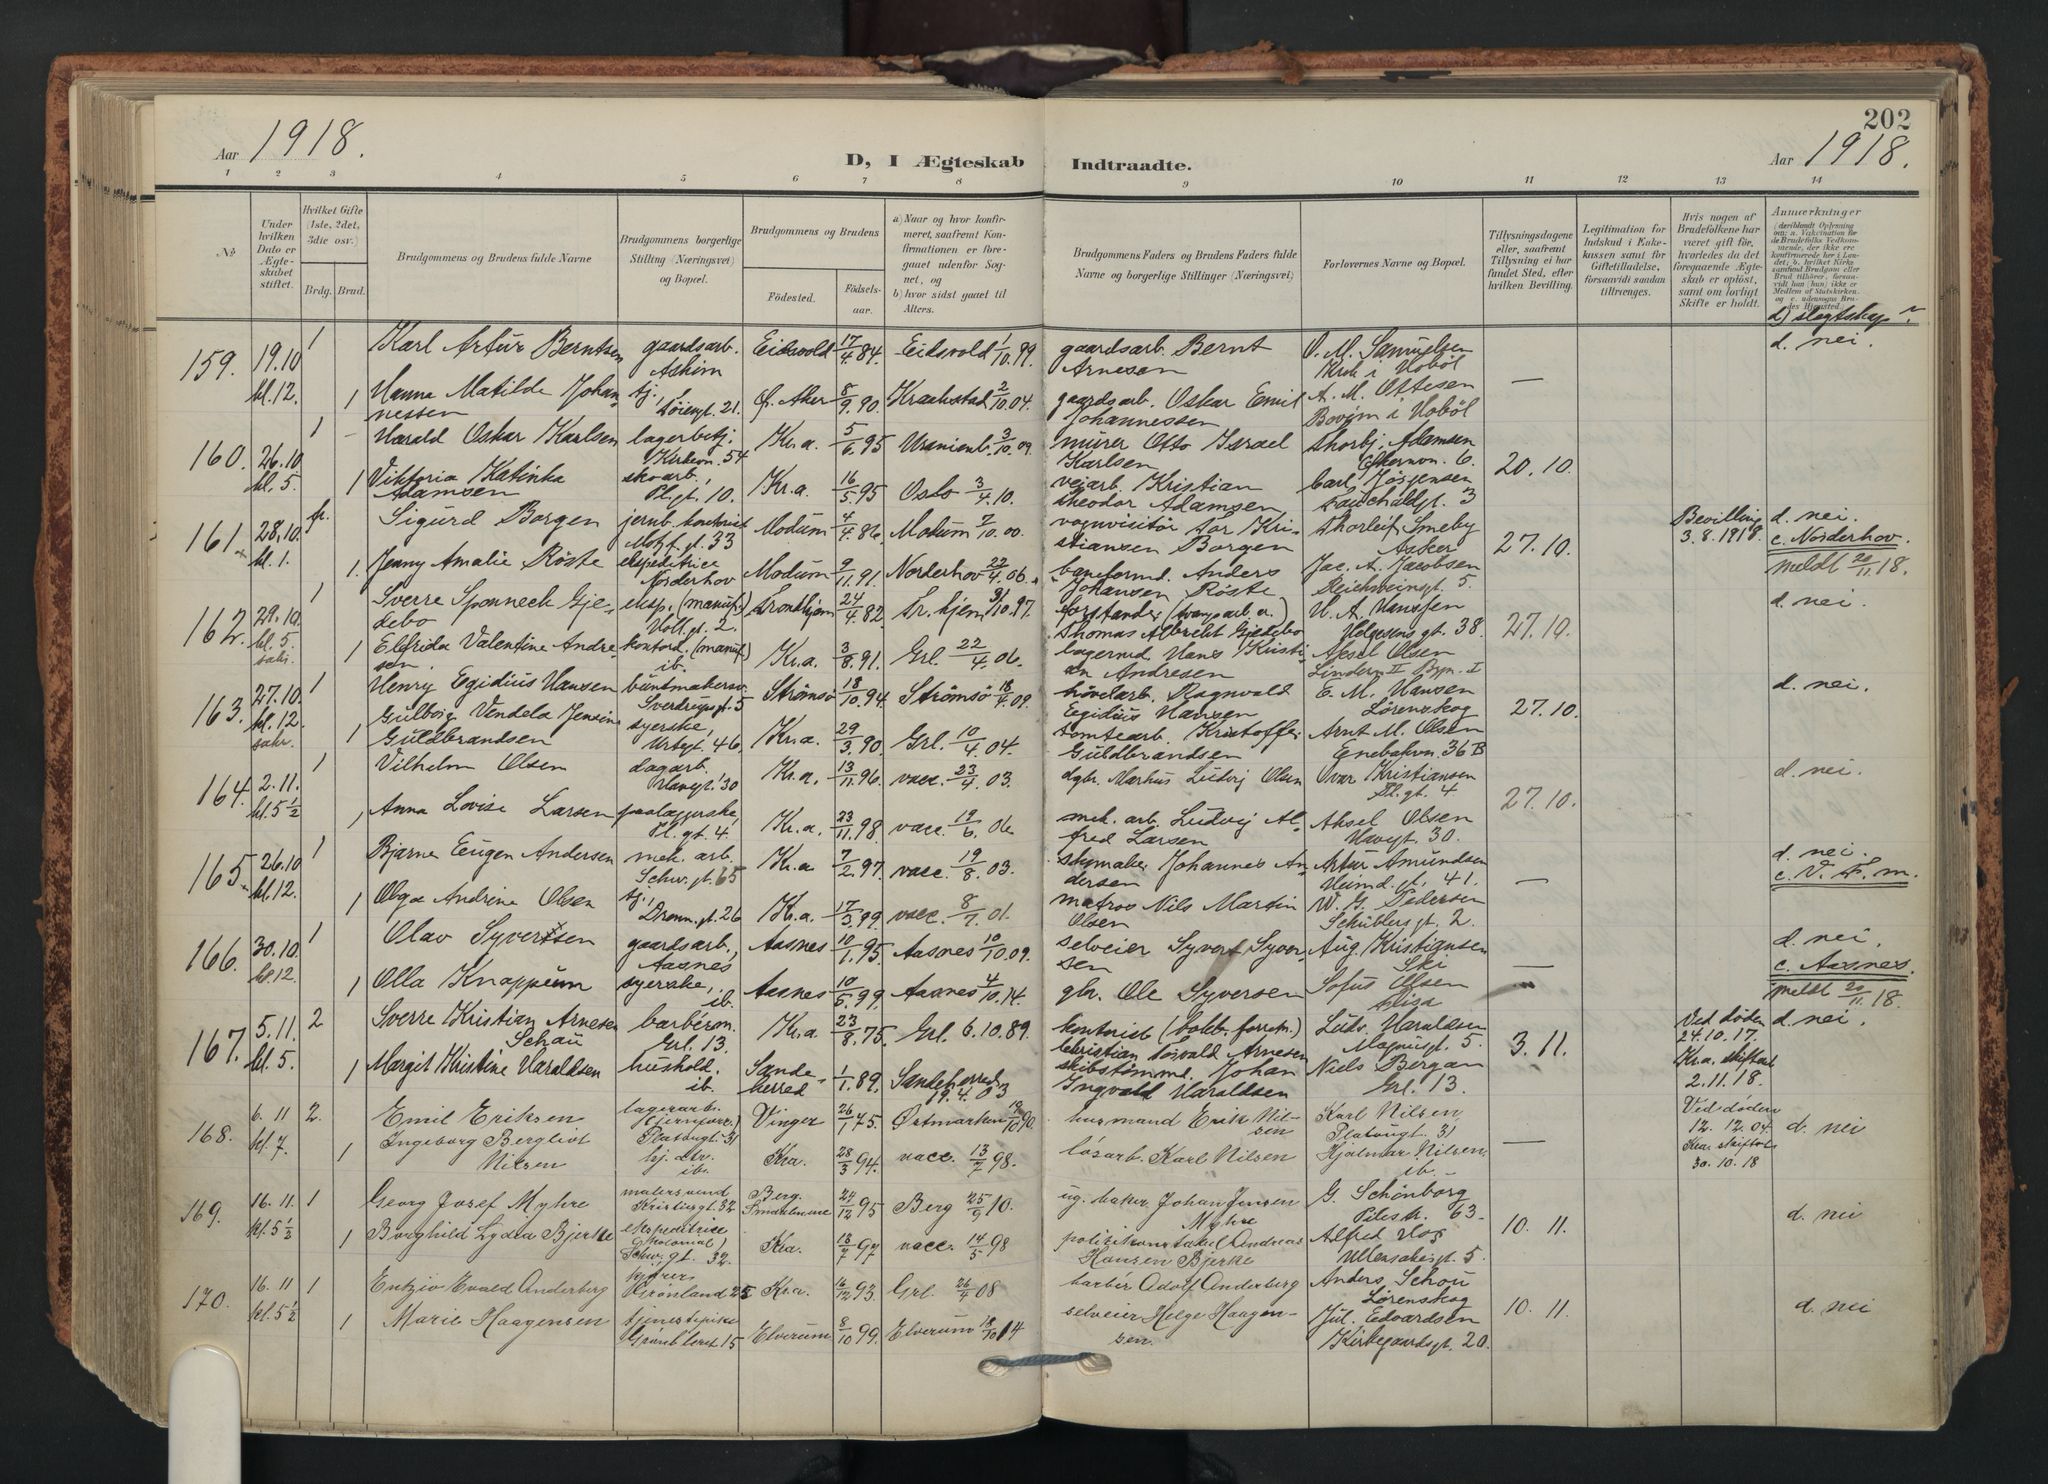 202
Aar 1918.
D, I Ægteskab Indtraadte.
Aar 1918.
1 2 3 4 5 6 7 8 9 10 11 12 13 14
No.
Under hvilken Dato er Ægteskabet stiftet.
Hvilket Gifte (1ste, 2det, 3die osv.)
Brdg. Brud.
Brudgommens og Brudens fulde Navne
Brudgommens borgerlige Stilling (Næringsvei) og Bopæl.
Brudgommens og Brudens
Fødested. Fødselsaar.
a) Naar og hvor konfirmeret, saafremt Konfirmationen er foregaaet udenfor Sognet, og
b) hvor sidst gaaet til Alters.
Brudgommens Faders og Brudens Faders fulde Navne og borgerlige Stillinger (Næringsvei)
Forlovernes Navne og Bopæl.
Tillysningsdagene eller, saafremt Tillysning ei har fundet Sted, efter hvilken Bevilling.
Legitimation for Indskud i Enkekassen samt for Giftetilladelse, forsaavidt saadan tiltrænges.
Hvis nogen af Brudefolkene har været gift før, hvorledes da det foregaaende Ægteskab er opløst, samt om lovligt Skifte er holdt.
Anmærkninger
d) slegtskap?
159. 19.10 kl. 12. 1
Karl Artur Berntsen gaardsarb. Askim Eidsvold 17/4 84. Eidsvold 1/10 99. gaardsarb. Bernt Arnesen O. M. Samuelsen Krok i Hobøl d. nei.
1 Hanna Matilde Johannessen tj., Soiengt. 21. Ø. Aker 8/9 90. Kraakstad 2/10 04. gaardsarb. Oskar Emil Johannessen A. M. Ottesen Bovim i Hobøl —
160. 26.10 kl. 5. 1
Harald Oskar Karlsen lagerbetj. Kirkevn. 54 Kr.a. 5/6 95 Uranienb. 3/10 09 murer Otto Israel Karlsen Thorbj. Adamsen 20.10
1 Viktoria Katinka Adamsen skoarb., Pl.gt. 10. Kr.a. 16/5 95 Oslo 3/4 10. veiarb. Kristian Theodor Adamsen Carl Jørgensen Fauchaldgt. 3
161. 28.10 kl. 1. fr.
Sigurd Borgen jernb. kontorist 33 Modum 4/4 86 Modum 7/10 00. vognvisitør Tor Kristiansen Borgen Thorleif Smeby Asker 27.10. Bevilling 3.8.1918. d. nei. c. Norderhov.
1. Jenny Amalie Røste ekspeditrice Norderhov Modum 9/11 91. Norderhov 22/4 06. baneformd. Anders Johansen Røste Jac. A. Jacobsen Reichweinsgt. 5. meldt 20/11 18.
162. 29.10. kl. 5. 1
Sverre Sponneck Gjedebo eksp. (manuf.) Voll.gt. 2. Trondhjem 24/4 82 Tr.hjem 31/10 97. forstander Thomas Albrecht Gjedebo H. A. Hanssen Helgesens gt. 38. 27.10. d. nei.
1 Elfrida Valentine Andresen. kontord. (manuf.) ib. Kr.a. 3/8 91. Grl. 22/4 06. lagermd. Hans Kristian Andresen Aksel Olsen
163. 27.10. kl. 12 1
Henry Egidius Hansen buntmakersv. Sverdrupsgt. 5 Strømsø 18/10 94. Strømsø 18/4 09. høvelarb. Ragnvald Egidius Hansen E. M. Hansen Lørenskog 27.10. d. nei.
1 Gulborg Vendela Jensine Guldbrandsen syerske, Urtegt. 46 Kr.a. 29/3 90 Grl. 10/4 04. tomtearb. Kristoffer Guldbrandsen Arnt M. Olsen Enebakvn. 36 B
164. 2.11. kl. 5 1/2 1
Vilhelm Olsen dagarb. Havegt. 30 Kr.a. 13/11 96. vacc. 23/4 03 dgbr. Markus Ludvig Olsen Ivar Kristiansen Pl.gt. 4 27.10. d. nei.
1 Anna Lovise Larsen paalæggerske, Pl.gt. 4. Kr.a. 23/11 98 vacc. 19/6 06 mek. arb. Ludvig Alfred Larsen Aksel Olsen Havgt. 30.
165. 26.10 kl. 12. 1
Bjarne Eugen Andersen mek. arb. Schw. gt. 65 Kr.a. 7/2 97. vacc. 19/8 03. skomaker Johannes Andersen Artur Amundsen Heimd. gt. 41. — d. nei. c. V. F. m.
1 Olga Andrine Olsen tj., Dronn. gt. 26 Kr.a. 17/3 99. vacc. 8/7 01. matros Nils Martin Olsen W. G. Pedersen Schüblersgt. 2.
166. 30.10. kl. 12. 1
Olav Syversen gaardsarb., Aasnes Aasnes 10/1 95. Aasnes 10/10 09. selveier Syvert Syversen Aug. Kristiansen Ski — d. nei. c. Aasnes.
1 Olla Knappum syerske, ib. Aasnes 10/5 99. Aasnes 4/10 14. gbr. Ole Syversen Sofus Olsen meldt 20/11 18.
167. 5.11. kl. 5. 2
Sverre Kristian Arnesen Schau barbérm. Grl. 13. Kr.a. 23/8 75. Grl. 6.10.89. kontorist Christian Torvald Arnesen Luds. Haraldsen Magnusgt. 5. 3.11. Ved døden 24.10.17. Kr.a. skifteret 2.11.18. d. nei.
1 Margit Kristine Haraldsen hushold. ib. Sandeherred 1/1 89. Sandeherred 19.4.03 skibstømmd. Johan Ingvald Haraldsen Niels Bergan Grl. 13.
168. 6.11 kl. 7. 2.
Emil Eriksen lagerarb. Platousgt. 31 Vinger 26/1 75. Østmarken 12/10 90. husmand Erik Nilsen Karl Nilsen, Platousgt. 31 — Ved døden 12.12.04. Kra. skifteret 30.10.18 d. nei
1 Ingeborg Bergliot Nilsen ib. Kra. 28/3 94. vacc. 13/7 98. løsarb. Karl Nilsen Hjalmar Nilsen. ib.
169. 16.11 kl. 5 1/2 1
Georg Josef Myhre malersvend 32 Berg. Smaalenene 24/12 95 Berg 25/9 10. ug. baker Johan Jensen Myhre G. Schönborg Pilestr. 63. 10. 11. d. nei
1 Borghild Lydia Bjerke ekspeditrice (kolonial) Schw. gt. 32. Kra. 18/7 97 vacc. 14/5 98 politikonstabel Andreas Hansen Bjerke Alfred Hos Ullensakergt. 5.
170. 16.11 kl. 5 1/2 1
Entzio Evald Anderberg kjører Grønland 25 Kra. 16/12 93. Grl. 26/4 08 barbér Adolf Anderberg Anders Schou Lørenskog 10. 11. d. nei
1 Marie Haagensen tjenestepike Grønlandsleret 15 Elverum 8/10 99. Elverum 18/10 14 selveier Helge Haagensen. Jul. Edvardsen Kirkegaardsgt. 20.